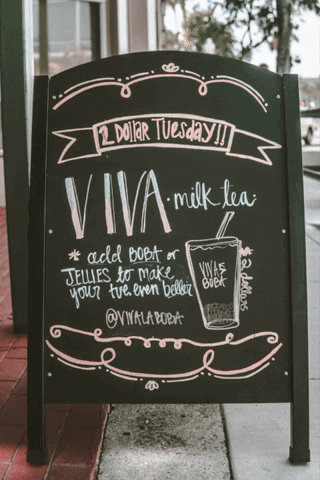 2 Dollar Tuesday!!
VIVA · milk tea ·
* add BOBA or
JELLIES to make
your tue. even better
@VIVALABOBA
VIVA LA
BOBA
* 2 dollars